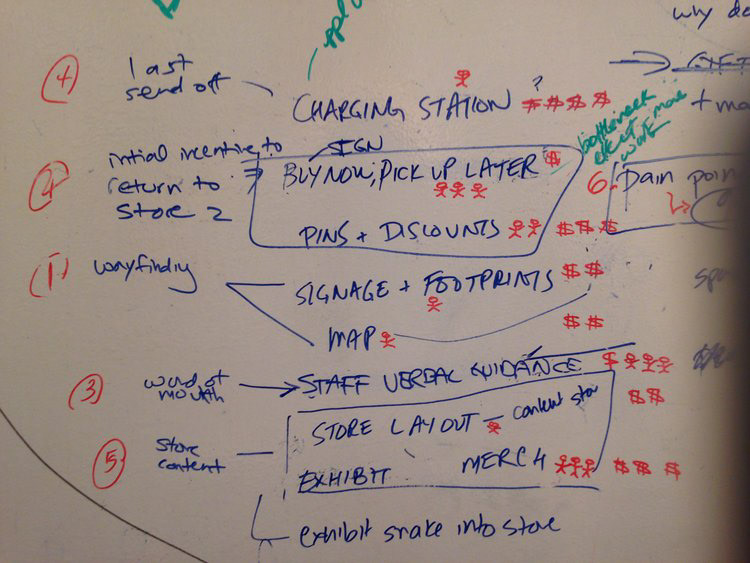 why do
④ last
send off
CHARGING STATION ? $ $ $ $
+ ma
bottleneck
elect more
work
② intial incentive to
return to
store 2
SIGN
BUY NOW, PICK UP LATER $
PINS + DISCOUNTS $ $ $
6. Pain poin
① wayfindig
SIGNAGE + FOOTPRINTS $ $
MAP $ $
③ word of
mouth
STAFF VERBAL GUIDANCE $
⑤ store
content
STORE LAYOUT - content stor $ $
EXHIBIT MERCH $ $ $
exhibit snake into store